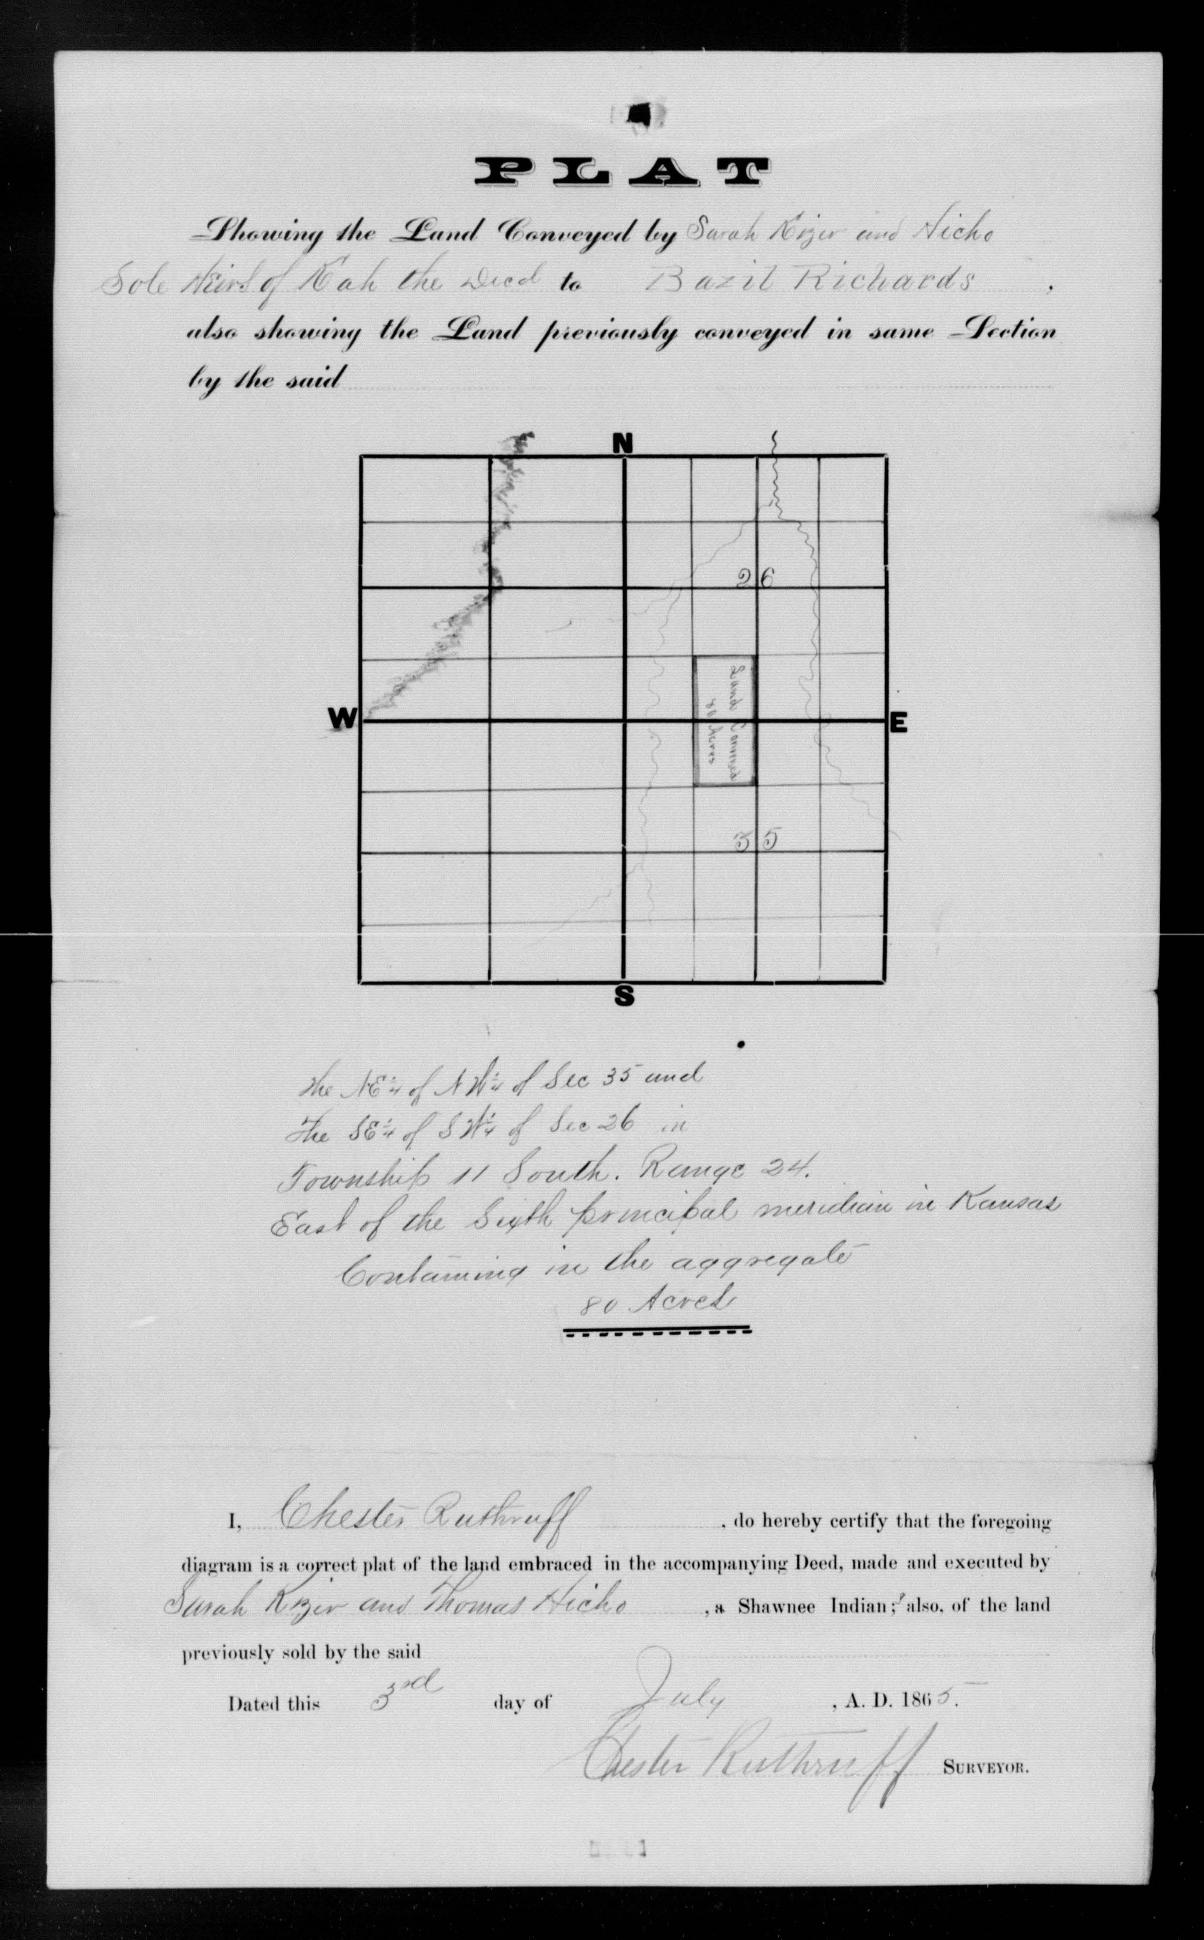 PLAT
Showing the Land Conveyed by Sarah Kizer and Hicho
Sole Heirs of Kah the Decd to Bazil Richards.
also showing the Land previously conveyed in same Section
by the said
N
26
W
E
Land Conveyed
80 Acres
35
S
The NE¼ of NW¼ of Sec 35 and
The SE¼ of SW¼ of Sec 26 in
Township 11 South. Range 24.
East of the Sixth principal meridian in Kansas
Containing in the aggregate
80 Acres
I, Chester Ruthruff, do hereby certify that the foregoing
diagram is a correct plat of the land embraced in the accompanying Deed, made and executed by
Sarah Kizer and Thomas Hicho, a Shawnee Indian; also, of the land
previously sold by the said
Dated this 3rd day of July, A. D. 1865.
Chester Ruthruff SURVEYOR.